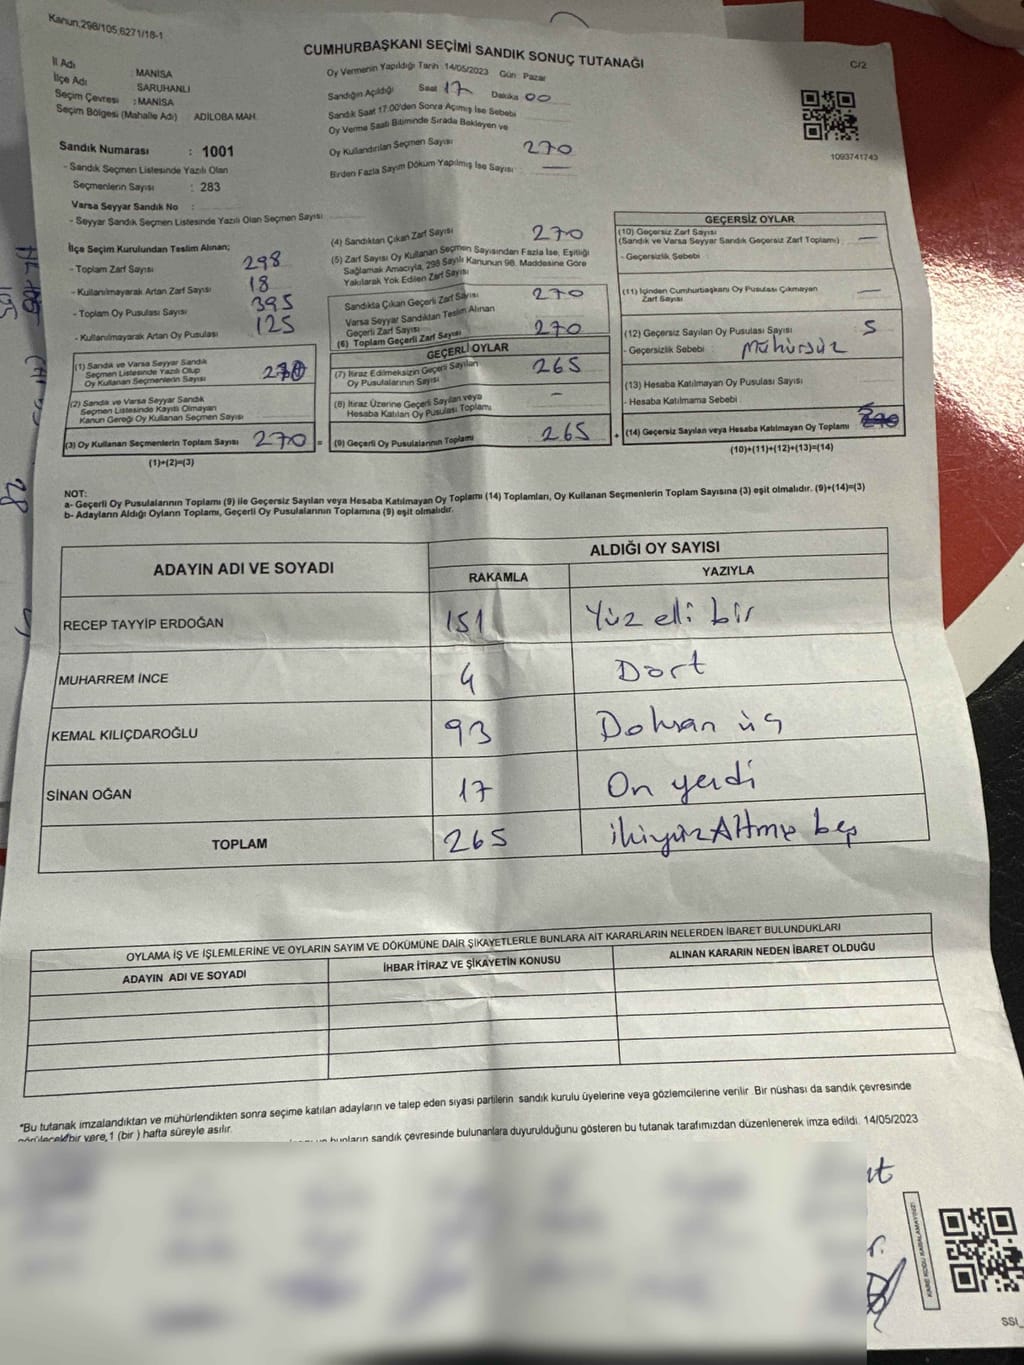 Kanun:298/105,6271/18-1
CUMHURBAŞKANI SEÇİMİ SANDIK SONUÇ TUTANAĞI
C/2
İl Adı : MANİSA
İlçe Adı SARUHANLI
Seçim Çevresi : MANİSA
Seçim Bölgesi (Mahalle Adı) ADİLOBA MAH.
Sandık Numarası : 1001
- Sandık Seçmen Listesinde Yazılı Olan
Seçmenlerin Sayısı : 283
Varsa Seyyar Sandık No :
- Seyyar Sandık Seçmen Listesinde Yazılı Olan Seçmen Sayısı
Oy Vermenin Yapıldığı Tarih :14/05/2023 Gün : Pazar
Sandığın Açıldığı Saat 17 Dakika 00
Sandık Saat 17:00'den Sonra Açımış İse Sebebi
Oy Verme Saati Bitiminde Sırada Bekleyen ve
Oy Kullandırılan Seçmen Sayısı 270
Birden Fazla Sayım Döküm Yapılmış İse Sayısı —
1093741743
İlçe Seçim Kurulundan Teslim Alınan;
- Toplam Zarf Sayısı 298
- Kullanılmayarak Artan Zarf Sayısı 18
- Toplam Oy Pusulası Sayısı 395
- Kullanılmayarak Artan Oy Pusulası 125
(1) Sandık ve Varsa Seyyar Sandık
Seçmen Listesinde Yazılı Olup
Oy Kullanan Seçmenlerin Sayısı 270
(2) Sandık ve Varsa Seyyar Sandık
Seçmen Listesinde Kayıtlı Olmayan
Kanun Gereği Oy Kullanan Seçmen Sayısı
(3) Oy Kullanan Seçmenlerin Toplam Sayısı 270 =
(1)+(2)=(3)
(4) Sandıktan Çıkan Zarf Sayısı 270
(5) Zarf Sayısı Oy Kullanan Seçmen Sayısından Fazla İse, Eşitliği
Sağlamak Amacıyla, 298 Sayılı Kanunun 98. Maddesine Göre
Yakılarak Yok Edilen Zarf Sayısı
Sandıkta Çıkan Geçerli Zarf Sayısı 270
Varsa Seyyar Sandıktan Teslim Alınan
Geçerli Zarf Sayısı
(6) Toplam Geçerli Zarf Sayısı 270
GEÇERLİ OYLAR
(7) İtiraz Edilmeksizin Geçerli Sayılan
Oy Pusulalarının Sayısı 265
(8) İtiraz Üzerine Geçerli Sayılan veya
Hesaba Katılan Oy Pusulası Toplamı -
(9) Geçerli Oy Pusulalarının Toplamı 265 +
GEÇERSİZ OYLAR
(10) Geçersiz Zarf Sayısı
(Sandık ve Varsa Seyyar Sandık Geçersiz Zarf Toplamı) —
- Geçersizlik Sebebi :
(11) İçinden Cumhurbaşkanı Oy Pusulası Çıkmayan
Zarf Sayısı —
(12) Geçersiz Sayılan Oy Pusulası Sayısı 5
- Geçersizlik Sebebi : Mühürsüz
(13) Hesaba Katılmayan Oy Pusulası Sayısı
- Hesaba Katılmama Sebebi
(14) Geçersiz Sayılan veya Hesaba Katılmayan Oy Toplamı 5
(10)+(11)+(12)+(13)=(14)
NOT:
a- Geçerli Oy Pusulalarının Toplamı (9) ile Geçersiz Sayılan veya Hesaba Katılmayan Oy Toplamı (14) Toplamları, Oy Kullanan Seçmenlerin Toplam Sayısına (3) eşit olmalıdır. (9)+(14)=(3)
b- Adayların Aldığı Oyların Toplamı, Geçerli Oy Pusulalarının Toplamına (9) eşit olmalıdır.
ADAYIN ADI VE SOYADI ALDIĞI OY SAYISI
RAKAMLA YAZIYLA
RECEP TAYYİP ERDOĞAN 151 Yüz elli bir
MUHARREM İNCE 4 Dört
KEMAL KILIÇDAROĞLU 93 Doksan üç
SİNAN OĞAN 17 On yedi
TOPLAM 265 ikiyüz Altmış beş
OYLAMA İŞ VE İŞLEMLERİNE VE OYLARIN SAYIM VE DÖKÜMÜNE DAİR ŞİKAYETLERLE BUNLARA AİT KARARLARIN NELERDEN İBARET BULUNDUKLARI
ADAYIN ADI VE SOYADI İHBAR İTİRAZ VE ŞİKAYETİN KONUSU ALINAN KARARIN NEDEN İBARET OLDUĞU
*Bu tutanak imzalandıktan ve mühürlendikten sonra seçime katılan adayların ve talep eden siyasi partilerin sandık kurulu üyelerine veya gözlemcilerine verilir. Bir nüshası da sandık çevresinde
görülecek bir yere 1 (bir ) hafta süreyle asılır.
bunların sandık çevresinde bulunanlara duyurulduğunu gösteren bu tutanak tarafımızdan düzenlenerek imza edildi. 14/05/2023
KARE KODU KARALAMAYINIZ!
SSI_